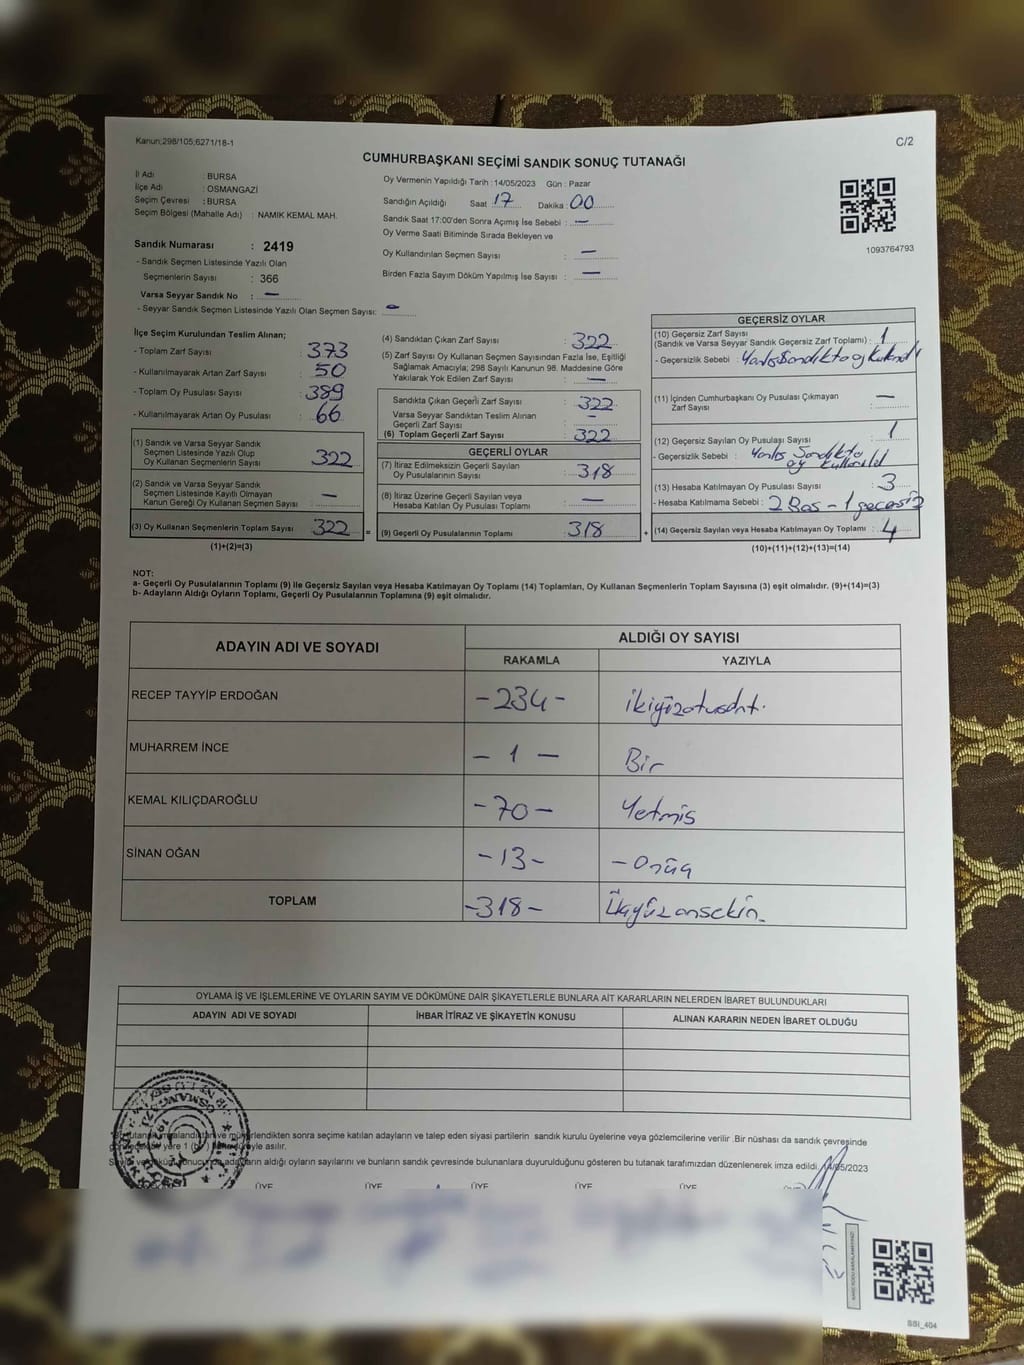 Kanun;298/105;6271/18-1
C/2
CUMHURBAŞKANI SEÇİMİ SANDIK SONUÇ TUTANAĞI
İl Adı : BURSA
İlçe Adı : OSMANGAZİ
Seçim Çevresi : BURSA
Seçim Bölgesi (Mahalle Adı) : NAMIK KEMAL MAH.
Sandık Numarası : 2419
- Sandık Seçmen Listesinde Yazılı Olan
Seçmenlerin Sayısı : 366
Varsa Seyyar Sandık No : —
- Seyyar Sandık Seçmen Listesinde Yazılı Olan Seçmen Sayısı: —
Oy Vermenin Yapıldığı Tarih :14/05/2023 Gün : Pazar
Sandığın Açıldığı Saat 17 Dakika : 00
Sandık Saat 17:00'den Sonra Açımış İse Sebebi : —
Oy Verme Saati Bitiminde Sırada Bekleyen ve
Oy Kullandırılan Seçmen Sayısı : —
Birden Fazla Sayım Döküm Yapılmış İse Sayısı : —
1093764793
İlçe Seçim Kurulundan Teslim Alınan;
- Toplam Zarf Sayısı : 373
- Kullanılmayarak Artan Zarf Sayısı : 50
- Toplam Oy Pusulası Sayısı : 389
- Kullanılmayarak Artan Oy Pusulası : 66
(1) Sandık ve Varsa Seyyar Sandık
Seçmen Listesinde Yazılı Olup
Oy Kullanan Seçmenlerin Sayısı 322
(2) Sandık ve Varsa Seyyar Sandık
Seçmen Listesinde Kayıtlı Olmayan
Kanun Gereği Oy Kullanan Seçmen Sayısı —
(3) Oy Kullanan Seçmenlerin Toplam Sayısı 322
(1)+(2)=(3)
(4) Sandıktan Çıkan Zarf Sayısı : 322
(5) Zarf Sayısı Oy Kullanan Seçmen Sayısından Fazla İse, Eşitliği
Sağlamak Amacıyla; 298 Sayılı Kanunun 98. Maddesine Göre
Yakılarak Yok Edilen Zarf Sayısı : —
Sandıkta Çıkan Geçerli Zarf Sayısı : 322
Varsa Seyyar Sandıktan Teslim Alınan
Geçerli Zarf Sayısı : —
(6) Toplam Geçerli Zarf Sayısı : 322
GEÇERLİ OYLAR
(7) İtiraz Edilmeksizin Geçerli Sayılan
Oy Pusulalarının Sayısı : 318
(8) İtiraz Üzerine Geçerli Sayılan veya
Hesaba Katılan Oy Pusulası Toplamı : —
= (9) Geçerli Oy Pusulalarının Toplamı : 318 +
GEÇERSİZ OYLAR
(10) Geçersiz Zarf Sayısı
(Sandık ve Varsa Seyyar Sandık Geçersiz Zarf Toplamı) : 1
- Geçersizlik Sebebi : Yanlış Sandıkta oy
(11) İçinden Cumhurbaşkanı Oy Pusulası Çıkmayan
Zarf Sayısı : —
(12) Geçersiz Sayılan Oy Pusulası Sayısı : 1
- Geçersizlik Sebebi : Yanlış Sandıkta
oy
(13) Hesaba Katılmayan Oy Pusulası Sayısı : 3
- Hesaba Katılmama Sebebi : 2 Boş - 1 geçersiz
(14) Geçersiz Sayılan veya Hesaba Katılmayan Oy Toplamı : 4
(10)+(11)+(12)+(13)=(14)
NOT:
a- Geçerli Oy Pusulalarının Toplamı (9) ile Geçersiz Sayılan veya Hesaba Katılmayan Oy Toplamı (14) Toplamları, Oy Kullanan Seçmenlerin Toplam Sayısına (3) eşit olmalıdır. (9)+(14)=(3)
b- Adayların Aldığı Oyların Toplamı, Geçerli Oy Pusulalarının Toplamına (9) eşit olmalıdır.
ADAYIN ADI VE SOYADI ALDIĞI OY SAYISI
RAKAMLA YAZIYLA
RECEP TAYYİP ERDOĞAN -234- ikiyüzotuzdört.
MUHARREM İNCE - 1 - Bir
KEMAL KILIÇDAROĞLU -70- Yetmiş
SİNAN OĞAN -13- - Onüç
TOPLAM -318- Üçyüzonsekiz
OYLAMA İŞ VE İŞLEMLERİNE VE OYLARIN SAYIM VE DÖKÜMÜNE DAİR ŞİKAYETLERLE BUNLARA AİT KARARLARIN NELERDEN İBARET BULUNDUKLARI
ADAYIN ADI VE SOYADI İHBAR İTİRAZ VE ŞİKAYETİN KONUSU ALINAN KARARIN NEDEN İBARET OLDUĞU
sonra seçime katılan adayların ve talep eden siyasi partilerin sandık kurulu üyelerine veya gözlemcilerine verilir .Bir nüshası da sandık çevresinde
yere 1 asılır.
adayların aldığı oyların sayılarını ve bunların sandık çevresinde bulunanlara duyurulduğunu gösteren bu tutanak tarafımızdan düzenlenerek imza edildi. 14/05/2023
ÜYE ÜYE ÜYE ÜYE ÜYE
SSI_404